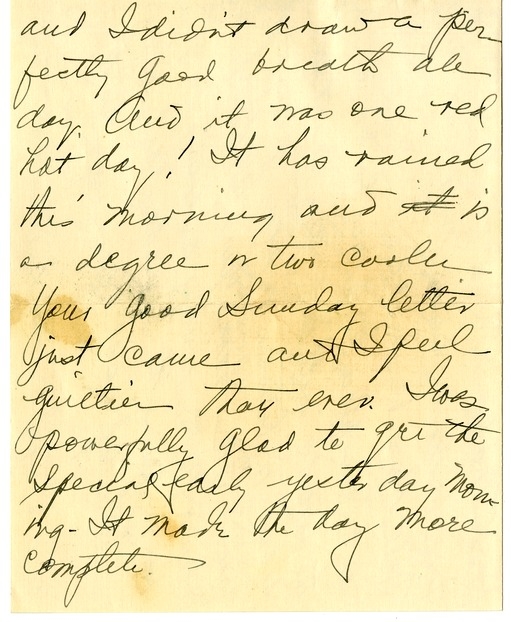 and I didn't draw a per-
fectly good breath all
day. And, it was one red
hot day! It has rained
this morning and it is
a degree or two cooler
Your good Sunday letter
just came and I feel
guiltier than ever. I was
powerfully glad to get the
special early yesterday morn-
ing - It made the day more
complete.